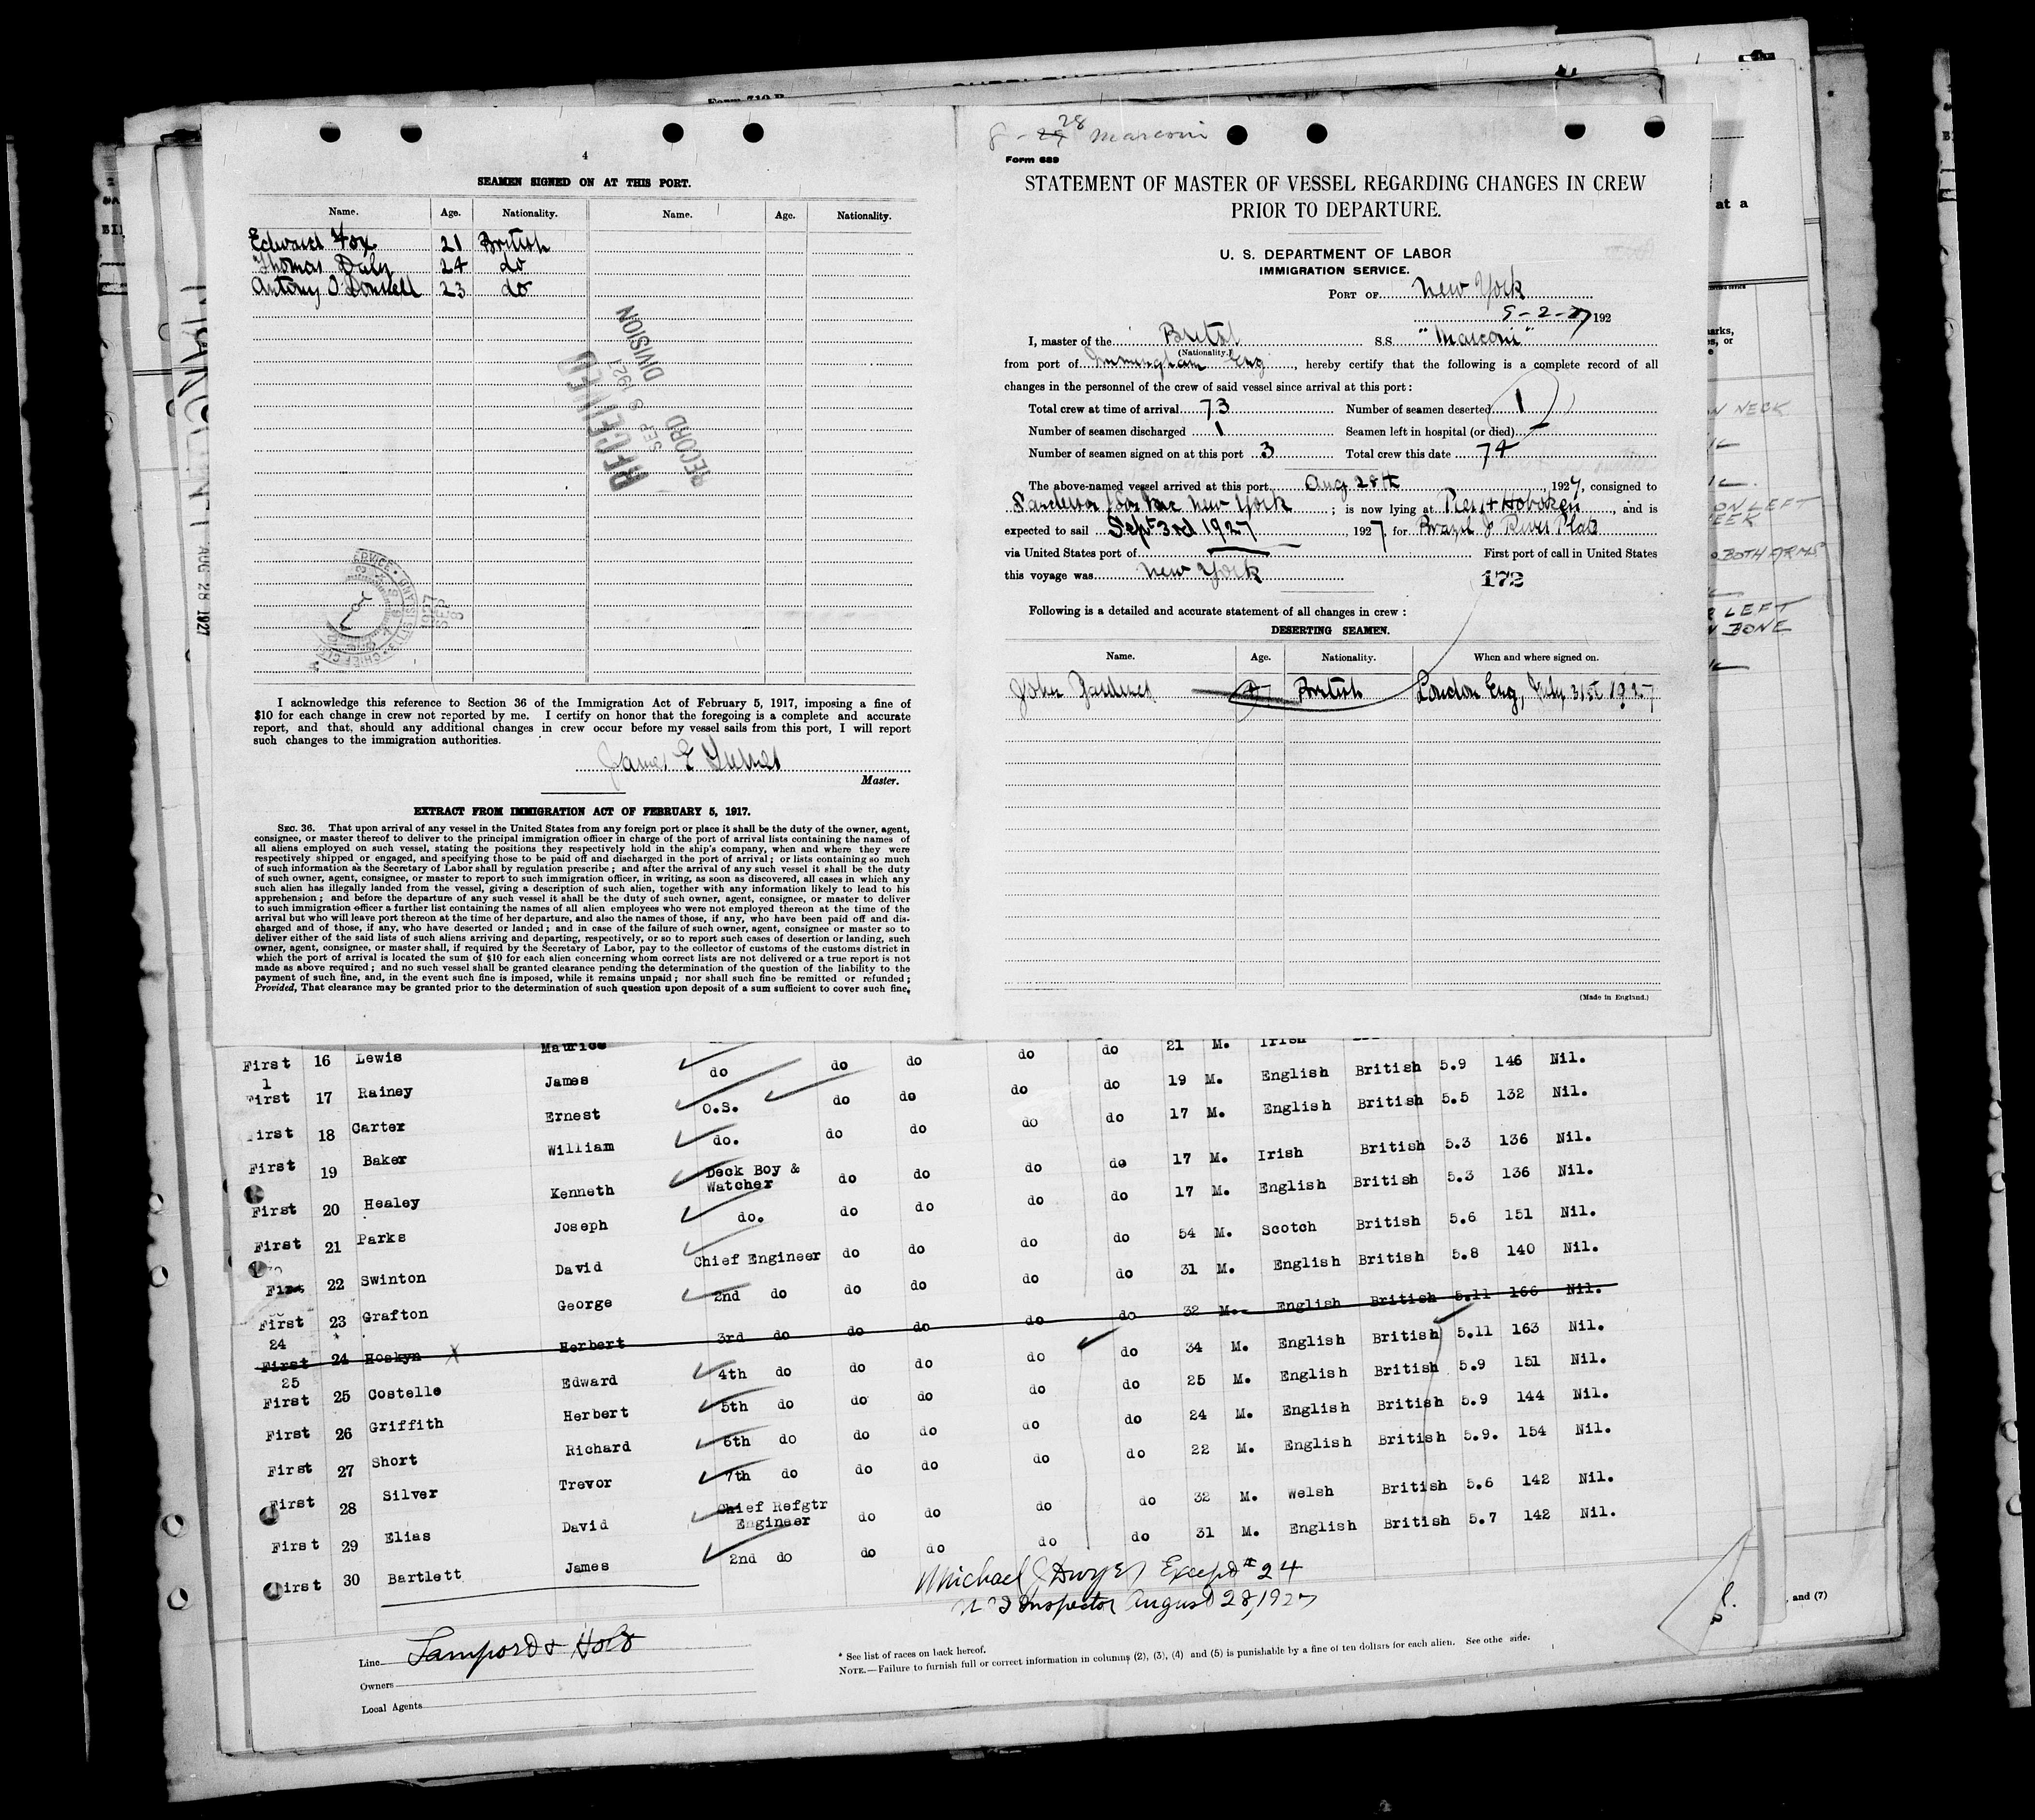 4
SEAMEN SIGNED ON AT THIS PORT.
Name. Age. Nationality. Name. Age. Nationality.
Edward Fox 21 British
Thomas Daly 24 do
Antony O'Donnell 23 do
RECEIVED
SEP 8 1927
RECORD DIVISION
AUG 28 1927
I acknowledge this reference to Section 36 of the Immigration Act of February 5, 1917, imposing a fine of
$10 for each change in crew not reported by me. I certify on honor that the foregoing is a complete and accurate
report, and that, should any additional changes in crew occur before my vessel sails from this port, I will report
such changes to the immigration authorities.
James E
Master.
EXTRACT FROM IMMIGRATION ACT OF FEBRUARY 5, 1917.
SEC. 36. That upon arrival of any vessel in the United States from any foreign port or place it shall be the duty of the owner, agent,
consignee, or master thereof to deliver to the principal immigration officer in charge of the port of arrival lists containing the names of
all aliens employed on such vessel, stating the positions they respectively hold in the ship's company, when and where they were
respectively shipped or engaged, and specifying those to be paid off and discharged in the port of arrival; or lists containing so much
of such information as the Secretary of Labor shall by regulation prescribe; and after the arrival of any such vessel it shall be the duty
of such owner, agent, consignee, or master to report to such immigration officer, in writing, as soon as discovered, all cases in which any
such alien has illegally landed from the vessel, giving a description of such alien, together with any information likely to lead to his
apprehension; and before the departure of any such vessel it shall be the duty of such owner, agent, consignee, or master to deliver
to such immigration officer a further list containing the names of all alien employees who were not employed thereon at the time of the
arrival but who will leave port thereon at the time of her departure, and also the names of those, if any, who have been paid off and dis-
charged and of those, if any, who have deserted or landed; and in case of the failure of such owner, agent, consignee or master so to
deliver either of the said lists of such aliens arriving and departing, respectively, or so to report such cases of desertion or landing, such
owner, agent, consignee, or master shall, if required by the Secretary of Labor, pay to the collector of customs of the customs district in
which the port of arrival is located the sum of $10 for each alien concerning whom correct lists are not delivered or a true report is not
made as above required; and no such vessel shall be granted clearance pending the determination of the question of the liability to the
payment of such fine, and, in the event such fine is imposed, while it remains unpaid; nor shall such fine be remitted or refunded;
Provided, That clearance may be granted prior to the determination of such question upon deposit of a sum sufficient to cover such fine,
8 - 28 Marconi
Form 689
STATEMENT OF MASTER OF VESSEL REGARDING CHANGES IN CREW
PRIOR TO DEPARTURE.
U. S. DEPARTMENT OF LABOR
IMMIGRATION SERVICE.
PORT OF New York
9-2-27 192
I, master of the British S.S. "Marconi"
(Nationality.)
from port of Immingham Eng, hereby certify that the following is a complete record of all
changes in the personnel of the crew of said vessel since arrival at this port:
Total crew at time of arrival 73 Number of seamen deserted 1
Number of seamen discharged 1 Seamen left in hospital (or died) -
Number of seamen signed on at this port 3 Total crew this date 74
The above-named vessel arrived at this port Aug 28th, 1927, consigned to
Sanderson & Son Inc New York; is now lying at Pier 4 Hoboken, and is
expected to sail Sept 3rd 1927, 1927, for Brazil & River Plate
via United States port of First port of call in United States
this voyage was New York 172
Following is a detailed and accurate statement of all changes in crew:
DESERTING SEAMEN.
Name. Age. Nationality. When and where signed on.
John Gardiner British London Eng, July 31st 1927
(Made in England.)
First 16 Lewis Maurice do do do do 21 M. Irish
First 17 Rainey James do do do do do 19 M. English British 5.9 146 Nil.
First 18 Carter Ernest O.S. do do do do 17 M. English British 5.5 132 Nil.
First 19 Baker William do. do do do do 17 M. Irish British 5.3 136 Nil.
First 20 Healey Kenneth Deck Boy & Watcher do do do do 17 M. English British 5.3 136 Nil.
First 21 Parks Joseph do. do do do do 54 M. Scotch British 5.6 151 Nil.
First 22 Swinton David Chief Engineer do do do do 31 M. English British 5.8 140 Nil.
First 23 Grafton George 2nd do do do do do 32 M. English British 5.11 166 Nil.
24
First 24 Hoskyn X Herbert 3rd do do do do do 34 M. English British 5.11 163 Nil.
25
First 25 Costelle Edward 4th do do do do do 25 M. English British 5.9 151 Nil.
First 26 Griffith Herbert 5th do do do do do 24 M. English British 5.9 144 Nil.
First 27 Short Richard 6th do do do do do 22 M. English British 5.9. 154 Nil.
First 28 Silver Trevor 7th do do do do do 32 M. Welsh British 5.6 142 Nil.
First 29 Elias David Chief Refgtr Engineer do do do do 31 M. English British 5.7 142 Nil.
First 30 Bartlett James 2nd do do do
Michael J Dwyer Except #24
U S Inspector August 28, 1927
Line Lamport & Holt
Owners
Local Agents
* See list of races on back hereof.
NOTE.—Failure to furnish full or correct information in columns (2), (3), (4) and (5) is punishable by a fine of ten dollars for each alien. See othe side.
, and (7)
at a
NECK
ON LEFT
BOTH ARMS
LEFT
BONE